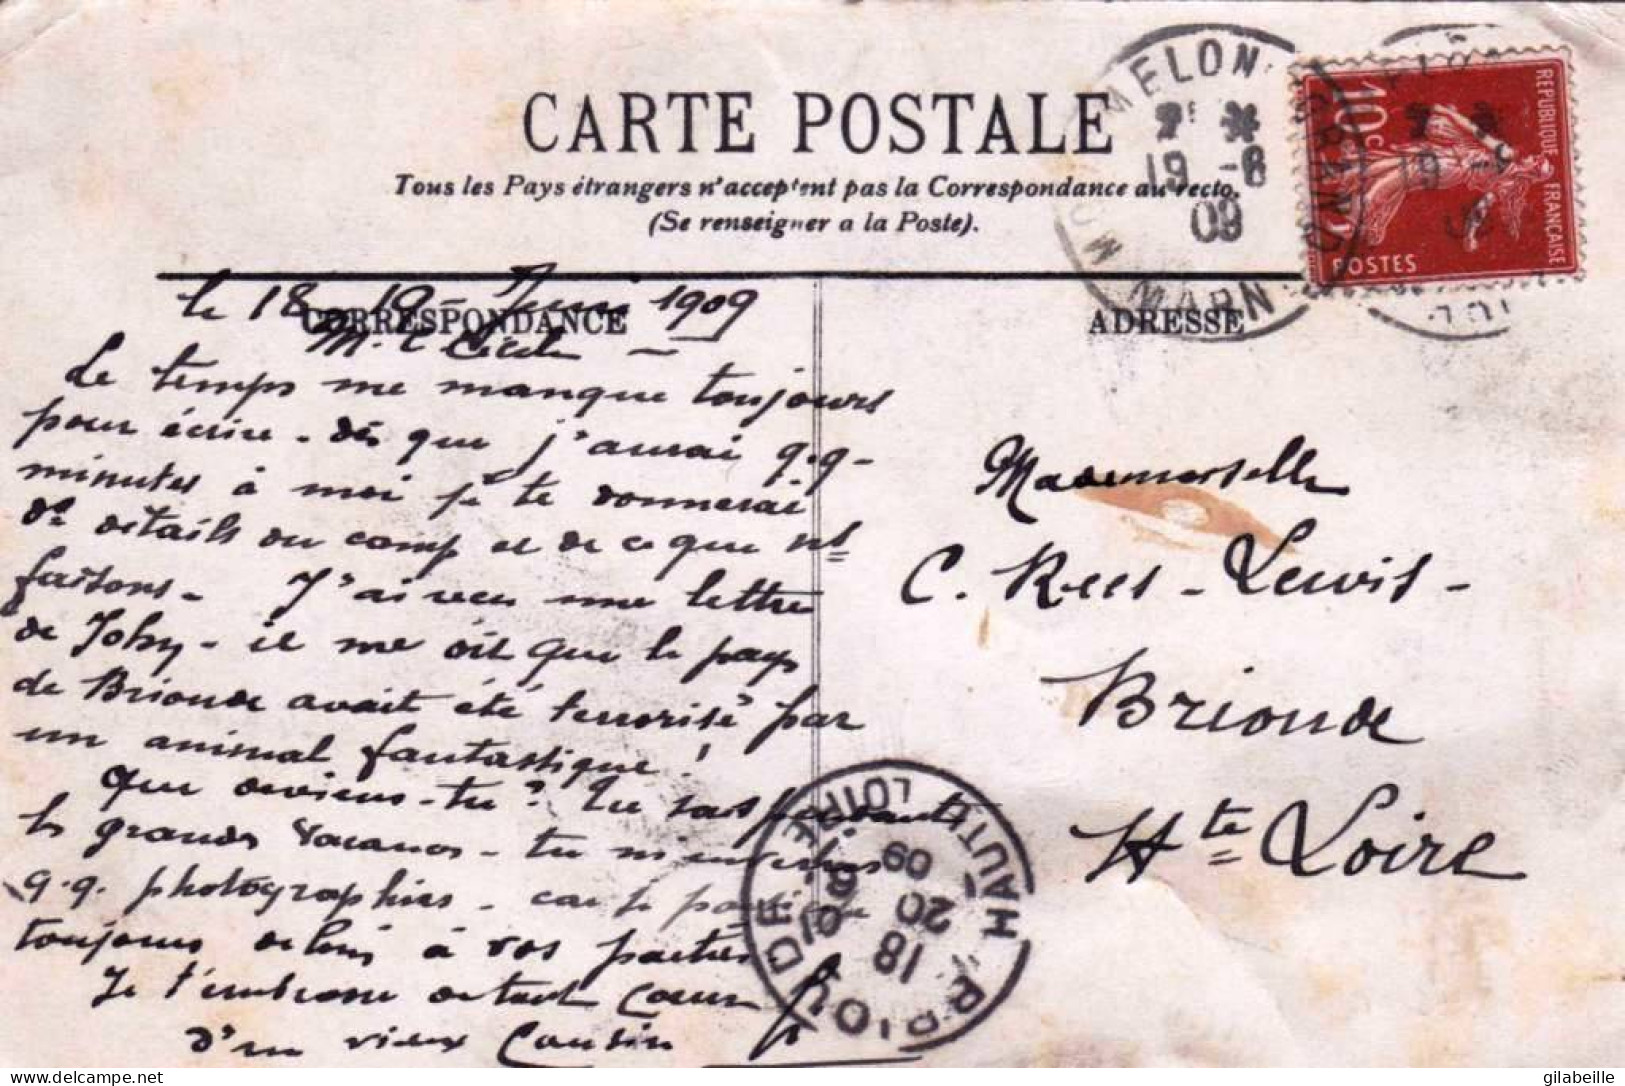 CARTE POSTALE
Tous les Pays étrangers n'acceptent pas la Correspondance au recto.
(Se renseigner a la Poste).
MELON GRAND
7 *
19 -6
09
MARN
REPUBLIQUE FRANÇAISE
10c
POSTES
CORRESPONDANCE
ADRESSE
le 18 - 19 - Juin 1909
M. C Cécile
Le temps me manque toujours
pour écrire - dès que j'aurai q.q-
minutes à moi je te donnerai
des détails du camp et de ce que ns
faisons - J'ai reçu une lettre
de Johy - il me dit que le pays
de Brioude avait été terrorisé par
un animal fantastique!
Que deviens-tu? Tu sais pendant
les grandes vacances - tu m'enverras
q.q. photographies - car je
toujours de loin à vos parties
Je t'embrasse de tout cœur
d'un vieux Cousin
Mademoiselle
C. Rees-Lewis-
Brioude
Hte Loire
BRIOUDE
HAUTE LOIRE
18
20 -6
09
gilabeille